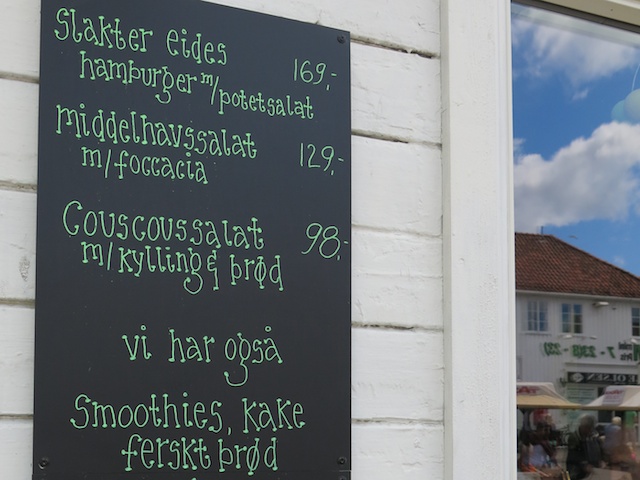 Slakter eides
hamburger m/potetsalat 169,-
middelhavssalat
m/foccacia 129,-
Couscoussalat
m/kylling & brød 98,-
vi har også
Smoothies, kake
ferskt brød
7 - 23(1 - 23)